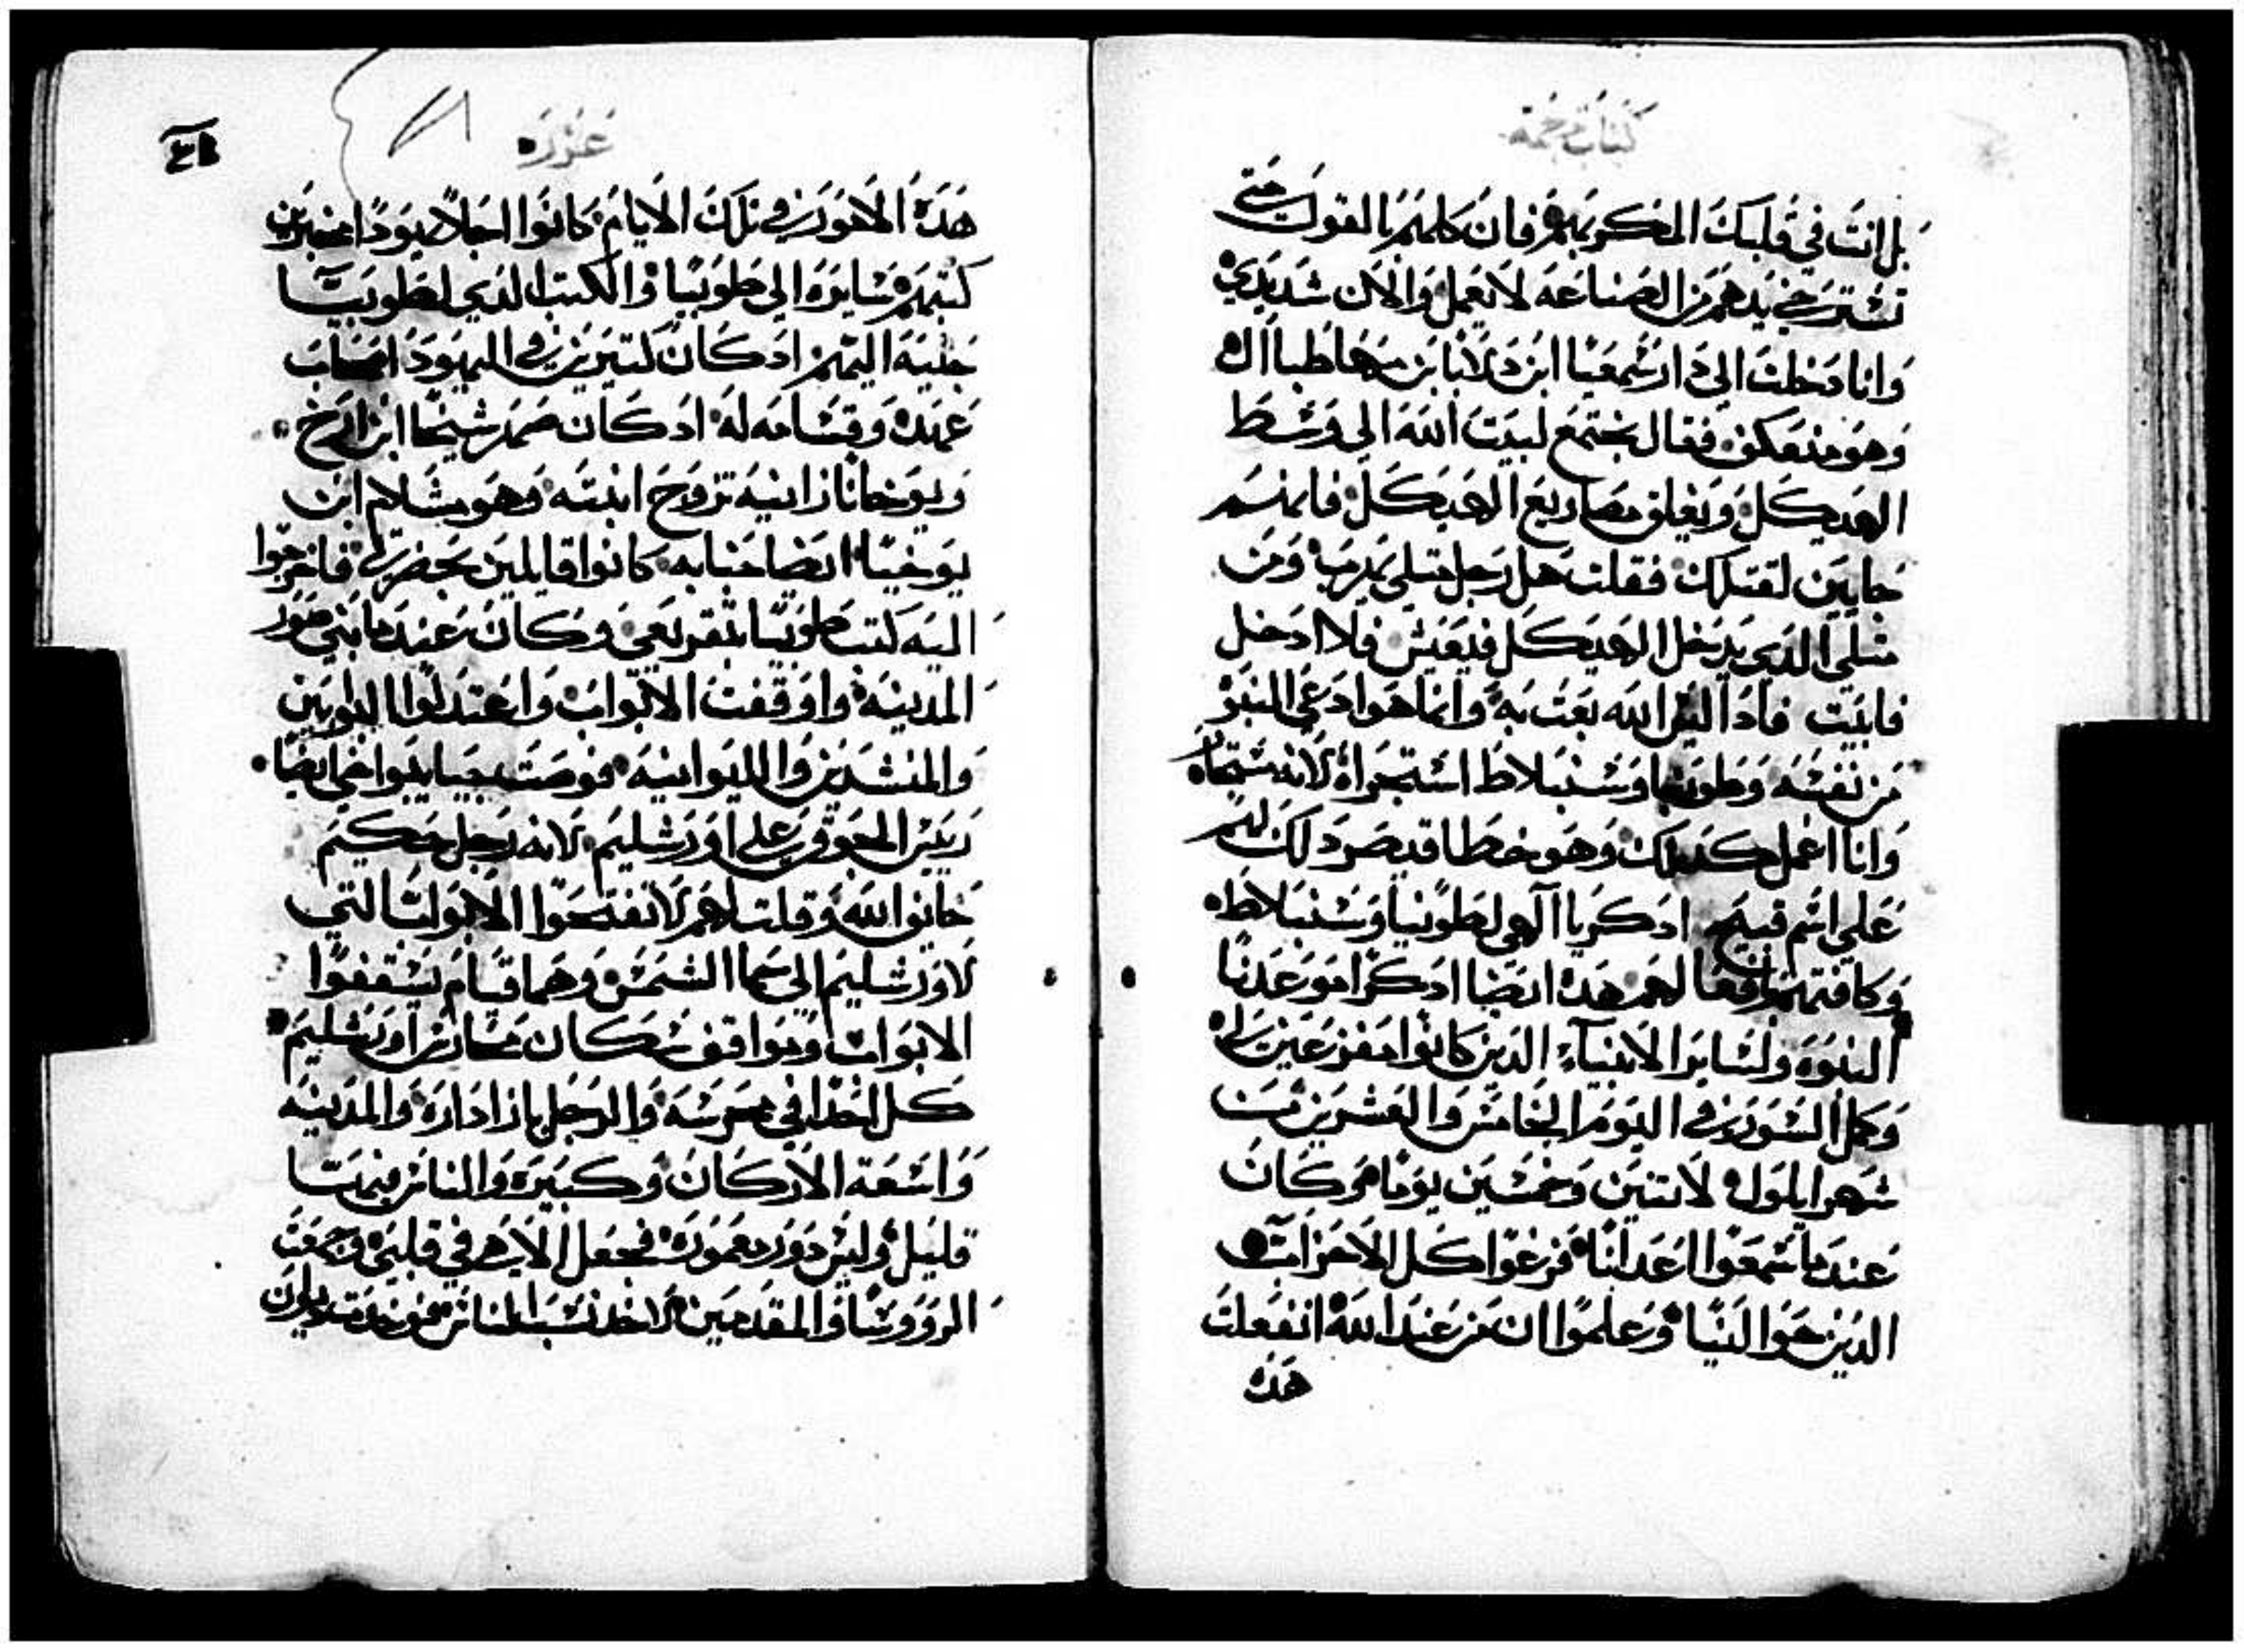 كتاب ترجمة
بل انت في قلبك المفكر بهم فان كلهم بالقول حتى
تسترخي يدهم من الصناعه لا تعمل والان شدد يدي
وانا دخلت الي دار شمعيا ابن دلانا بن
وهو منعكف فقال نجتمع لبيت الله الي وسط
الهيكل ونغلق مصاريع الهيكل فانهم
جايين لقتلك فقلت هل رجل مثلي يهرب ومن
مثلي الدي يدخل الهيكل فيعيش فلا ادخل
فابيت فادا ليس الله بعت به وانما هو ادعي المنبر
من نفسه وطوبيا وسنبلاط استجراه لانه
وانا اعمل كدلك وهو خطا قد يصر دلك لهم
علي اسم قبيح ادكر يا الهي لطوبيا وسنبلاط
وكافتهم وافعالهم هده ايضا ادكر لنوعدنا
النبوه ولسابر الانبياء الدين كانوا مفزعين لي
وكمل السور في اليوم الخامس والعشرين من
شهر ايلول لاتنين وخمسين يوما وكان
عند ما سمعوا اعدانا فزعوا كل الاحزاب
الدين حوالينا وعلموا ان من عند الله انفعلت
هده
عزره
هده الامور في تلك الايام كانوا اجلا يودا
كتبهم سايره الي طوبيا والكتب الدي لطوبيا
جايه اليهم اد كان كتيرين في اليهود اصحاب
عهده وقسامه له اد كان صهر شيخا ابن ارخ
ويوخانا زانيه تزوج ابنته وهو مشلام ابن
يوخيا ايضا كانوا قايلين بحضرتي فاخرجوا
اليه كتب طوبيا بتقريعي وكان عند ما بني سور
المدينه واوقفت الابواب واعتدلوا البوابين
والمنشدين والليوانيه فوصت اخي ايضا
علي اورشليم لانه رجل حكيم
خايف الله وقلت لهم لا تفتحوا الابواب التي
لاورشليم الي حما الشمس وهما قيام يسقفوا
الابواب وتواقف سكان اورشليم
كل احدا في محرسه والرجل بازا داره والمدينه
واسعة الاركان وكبيره والناس فيها
قليل وليس دور معموره فجعل الاله في قلبي وجمعت
الروورسا والمقدمين لاخد نسب الناس